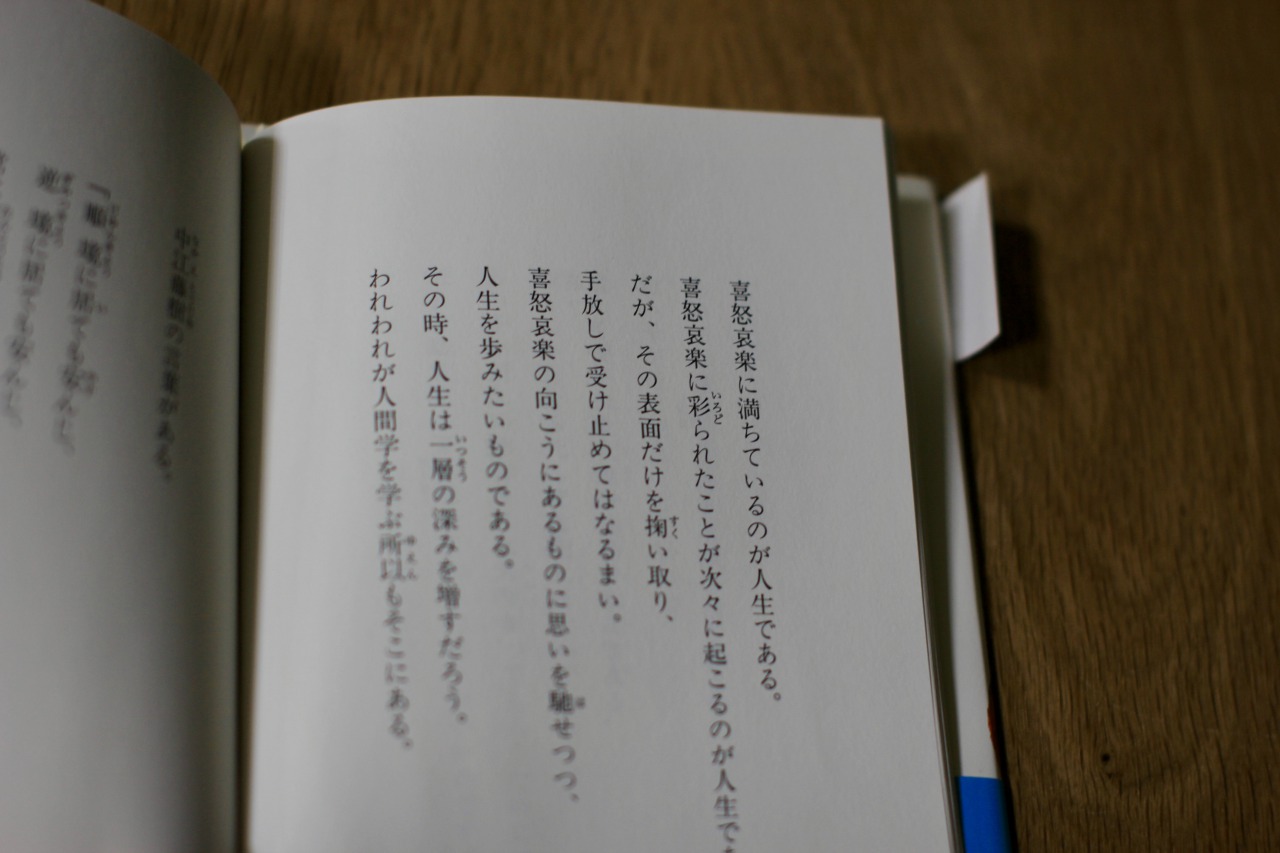 喜怒哀楽に満ちているのが人生である。
喜怒哀楽に彩られたことが次々に起こるのが人生で
だが、その表面だけを掬い取り、
手放しで受け止めてはなるまい。
喜怒哀楽の向こうにあるものに思いを馳せつつ、
人生を歩みたいものである。
その時、人生は一層の深みを増すだろう。
われわれが人間学を学ぶ所以もそこにある。
中江藤樹の言葉がある。
「順境に居ても安んじ、
逆境に居ても安んじ、